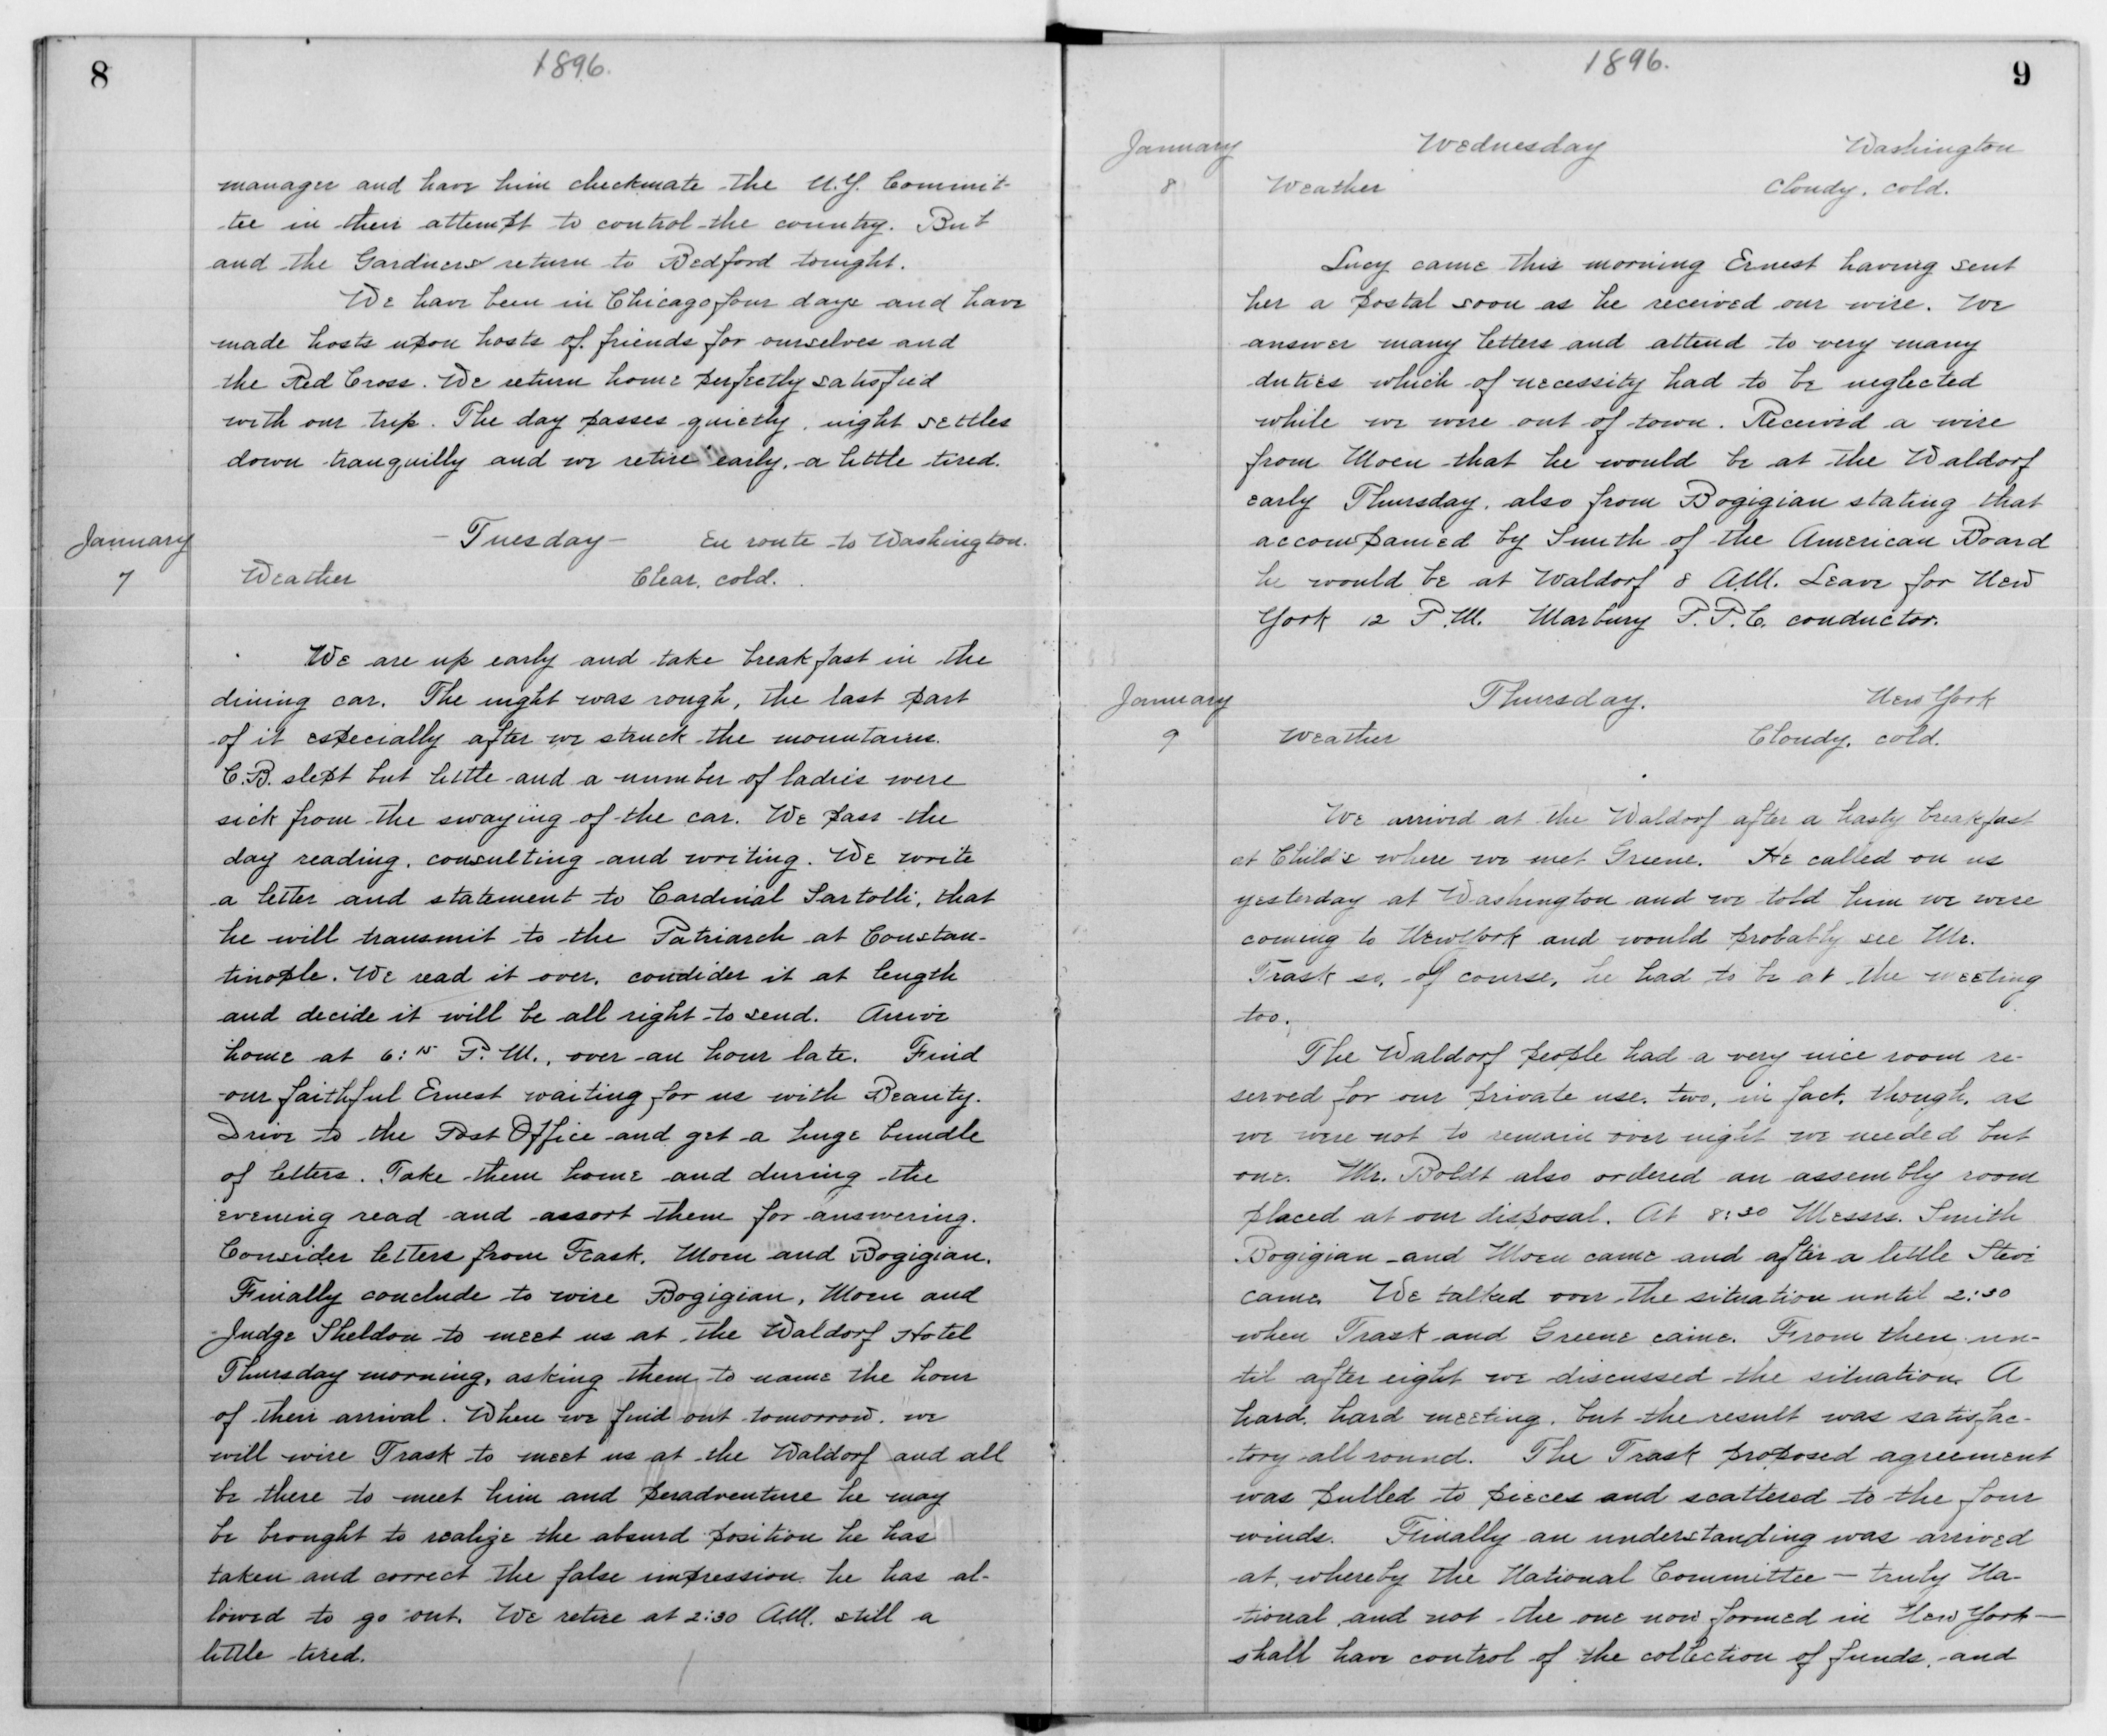 8
1896.
manager and have him checkmate the N.Y. Commit-
tee in their attempt to control the country. But
and the Gardners return to Bedford tonight.
We have been in Chicago four days and have
made hosts upon hosts of friends for ourselves and
the Red Cross. We return home perfectly satisfied
with our trip. The day passes quietly, night settles
down tranquilly and we retire early, a little tired.
January - Tuesday - En route to Washington.
7 Weather Clear, cold.
We are up early and take breakfast in the
dining car. The night was rough, the last part
of it especially after we struck the mountains.
C.B. slept but little and a number of ladies were
sick from the swaying of the car. We pass the
day reading, consulting and writing. We write
a letter and statement to Cardinal Sartolli, that
he will transmit to the Patriarch at Constan-
tinople. We read it over, condider it at length
and decide it will be all right to send. Arrive
home at 6:15 P.M., over an hour late. Find
our faithful Ernest waiting for us with Beauty.
Drive to the Post Office and get a huge bundle
of letters. Take them home and during the
evening read and assort them for answering.
Consider letters from Trask, Moen and Bogigian.
Finally conclude to wire Bogigian, Moen and
Judge Sheldon to meet us at the Waldorf Hotel
Thursday morning, asking them to name the hour
of their arrival. When we find out tomorrow, we
will wire Trask to meet us at the Waldorf and all
be there to meet him and peradventure he may
be brought to realize the absurd position he has
taken and correct the false impression he has al-
lowed to go out. We retire at 2:30 A.M. still a
little tired.
1896.
9
January Wednesday Washington
8 Weather Cloudy, cold.
Lucy came this morning Ernest having sent
her a postal soon as he received our wire. We
answer many letters and attend to very many
duties which of necessity had to be neglected
while we were out of town. Received a wire
from Moen that he would be at the Waldorf
early Thursday, also from Bogigian stating that
accompanied by Smith of the American Board
he would be at Waldorf 8 A.M. Leave for New
York 12 P.M. Marbury P.P.C. conductor.
January Thursday. New York
9 Weather Cloudy, cold.
We arrived at the Waldorf after a hasty breakfast
at Child's where we met Greene. He called on us
yesterday at Washington and we told him we were
coming to New York and would probably see Mr.
Trask so, of course, he had to be at the meeting
too.
The Waldorf people had a very nice room re-
served for our private use, two, in fact, though, as
we were not to remain over night we needed but
one. Mr. Boldt also ordered an assembly room
placed at our disposal. At 8:30 Messrs. Smith
Bogigian and Moen came and after a little Steve
came. We talked over the situation until 2:30
when Trask and Greene came. From then un-
til after eight we discussed the situation. A
hard, hard meeting, but the result was satisfac-
tory all round. The Trask proposed agreement
was pulled to pieces and scattered to the four
winds. Finally an understanding was arrived
at, whereby the National Committee — truly Na-
tional, and not the one now formed in New York —
shall have control of the collection of funds, and